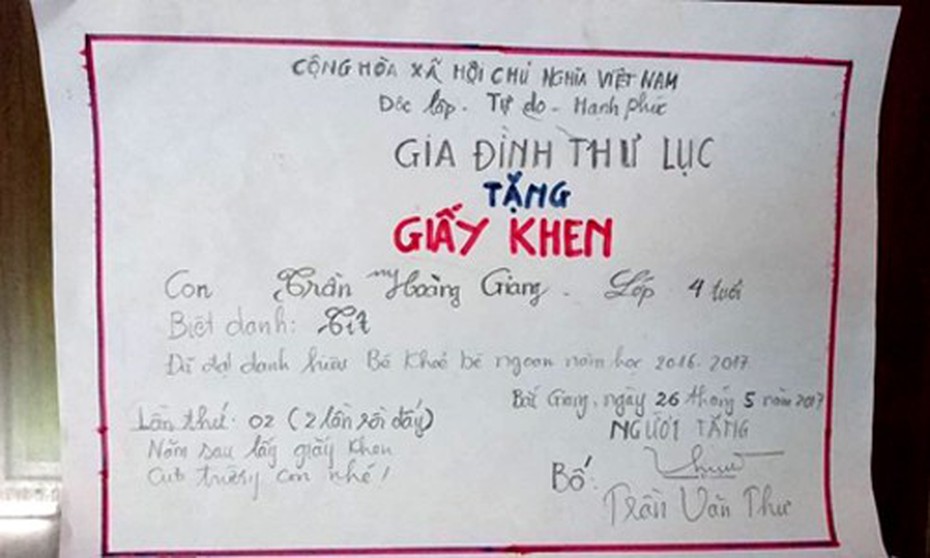 CỘNG HÒA XÃ HỘI CHỦ NGHĨA VIỆT NAM
Độc lập - Tự do - Hạnh phúc
GIA ĐÌNH THƯ LỤC
TẶNG
GIẤY KHEN
Con Trần Hoàng Giang. Lớp 4 tuổi
Biệt danh: Tít
Đã đạt danh hiệu Bé Khoẻ bé ngoan năm học 2016-2017
Bắc Giang, ngày 26 tháng 5 năm 2017
Lần thứ: 02 (2 lần rồi đấy)
NGƯỜI TẶNG
Năm sau lấy giấy khen
của trường con nhé!
Bố:
Trần Văn Thư